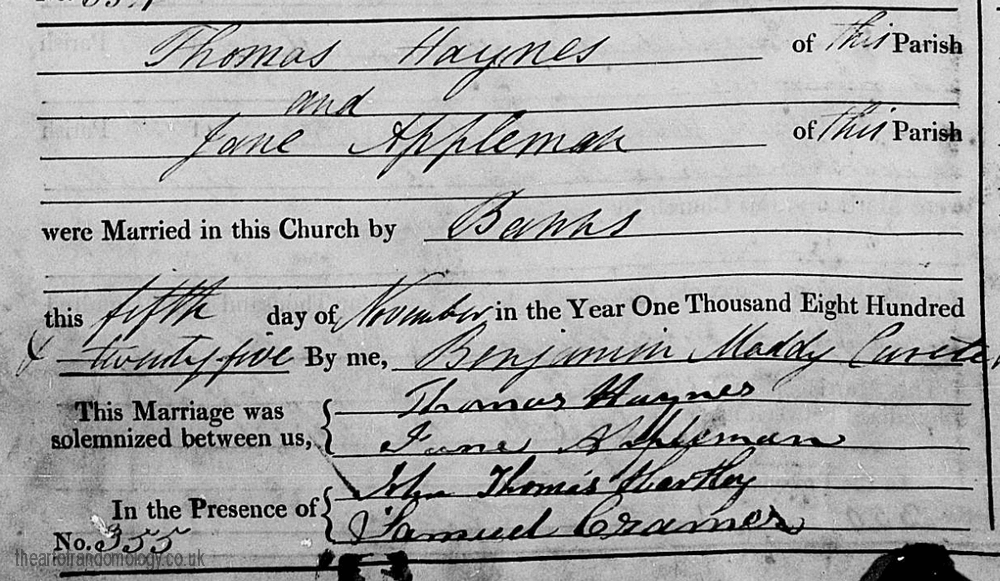 Thomas Haynes of this Parish
and
Jane Appleman of this Parish
were Married in this Church by Banns
this fifth day of November in the Year One Thousand Eight Hundred
& twenty five By me, Benjamin Maddy Curate
This Marriage was solemnized between us,
Thomas Haynes
Jane Appleman
In the Presence of
John Thomas Hartley
Samuel Cramer
No. 355
theartofrandomology.co.uk